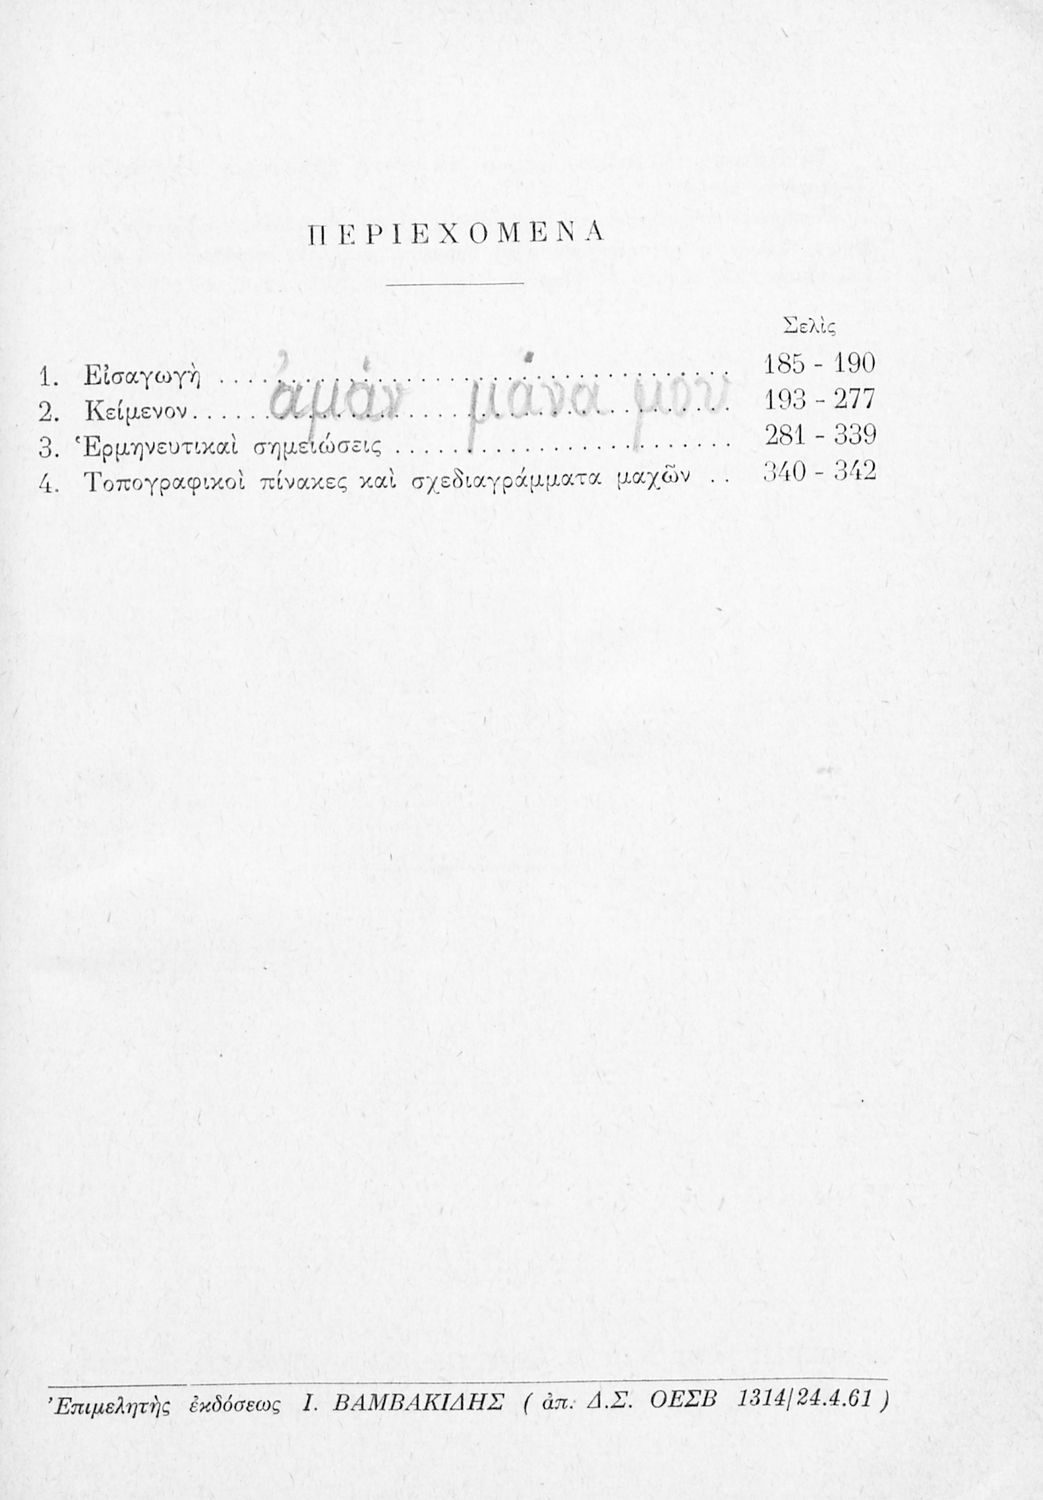 ΠΕΡΙΕΧΟΜΕΝΑ
Σελὶς
1. Εἰσαγωγὴ ........................................ 185 - 190
2. Κείμενον ........................................ 193 - 277
3. Ἑρμηνευτικαὶ σημειώσεις ........................ 281 - 339
4. Τοπογραφικοὶ πίνακες καὶ σχεδιαγράμματα μαχῶν .. 340 - 342
ἀμάν μάνα μου
Ἐπιμελητὴς ἐκδόσεως Ι. ΒΑΜΒΑΚΙΔΗΣ ( ἀπ. Δ.Σ. ΟΕΣΒ 1314/24.4.61 )